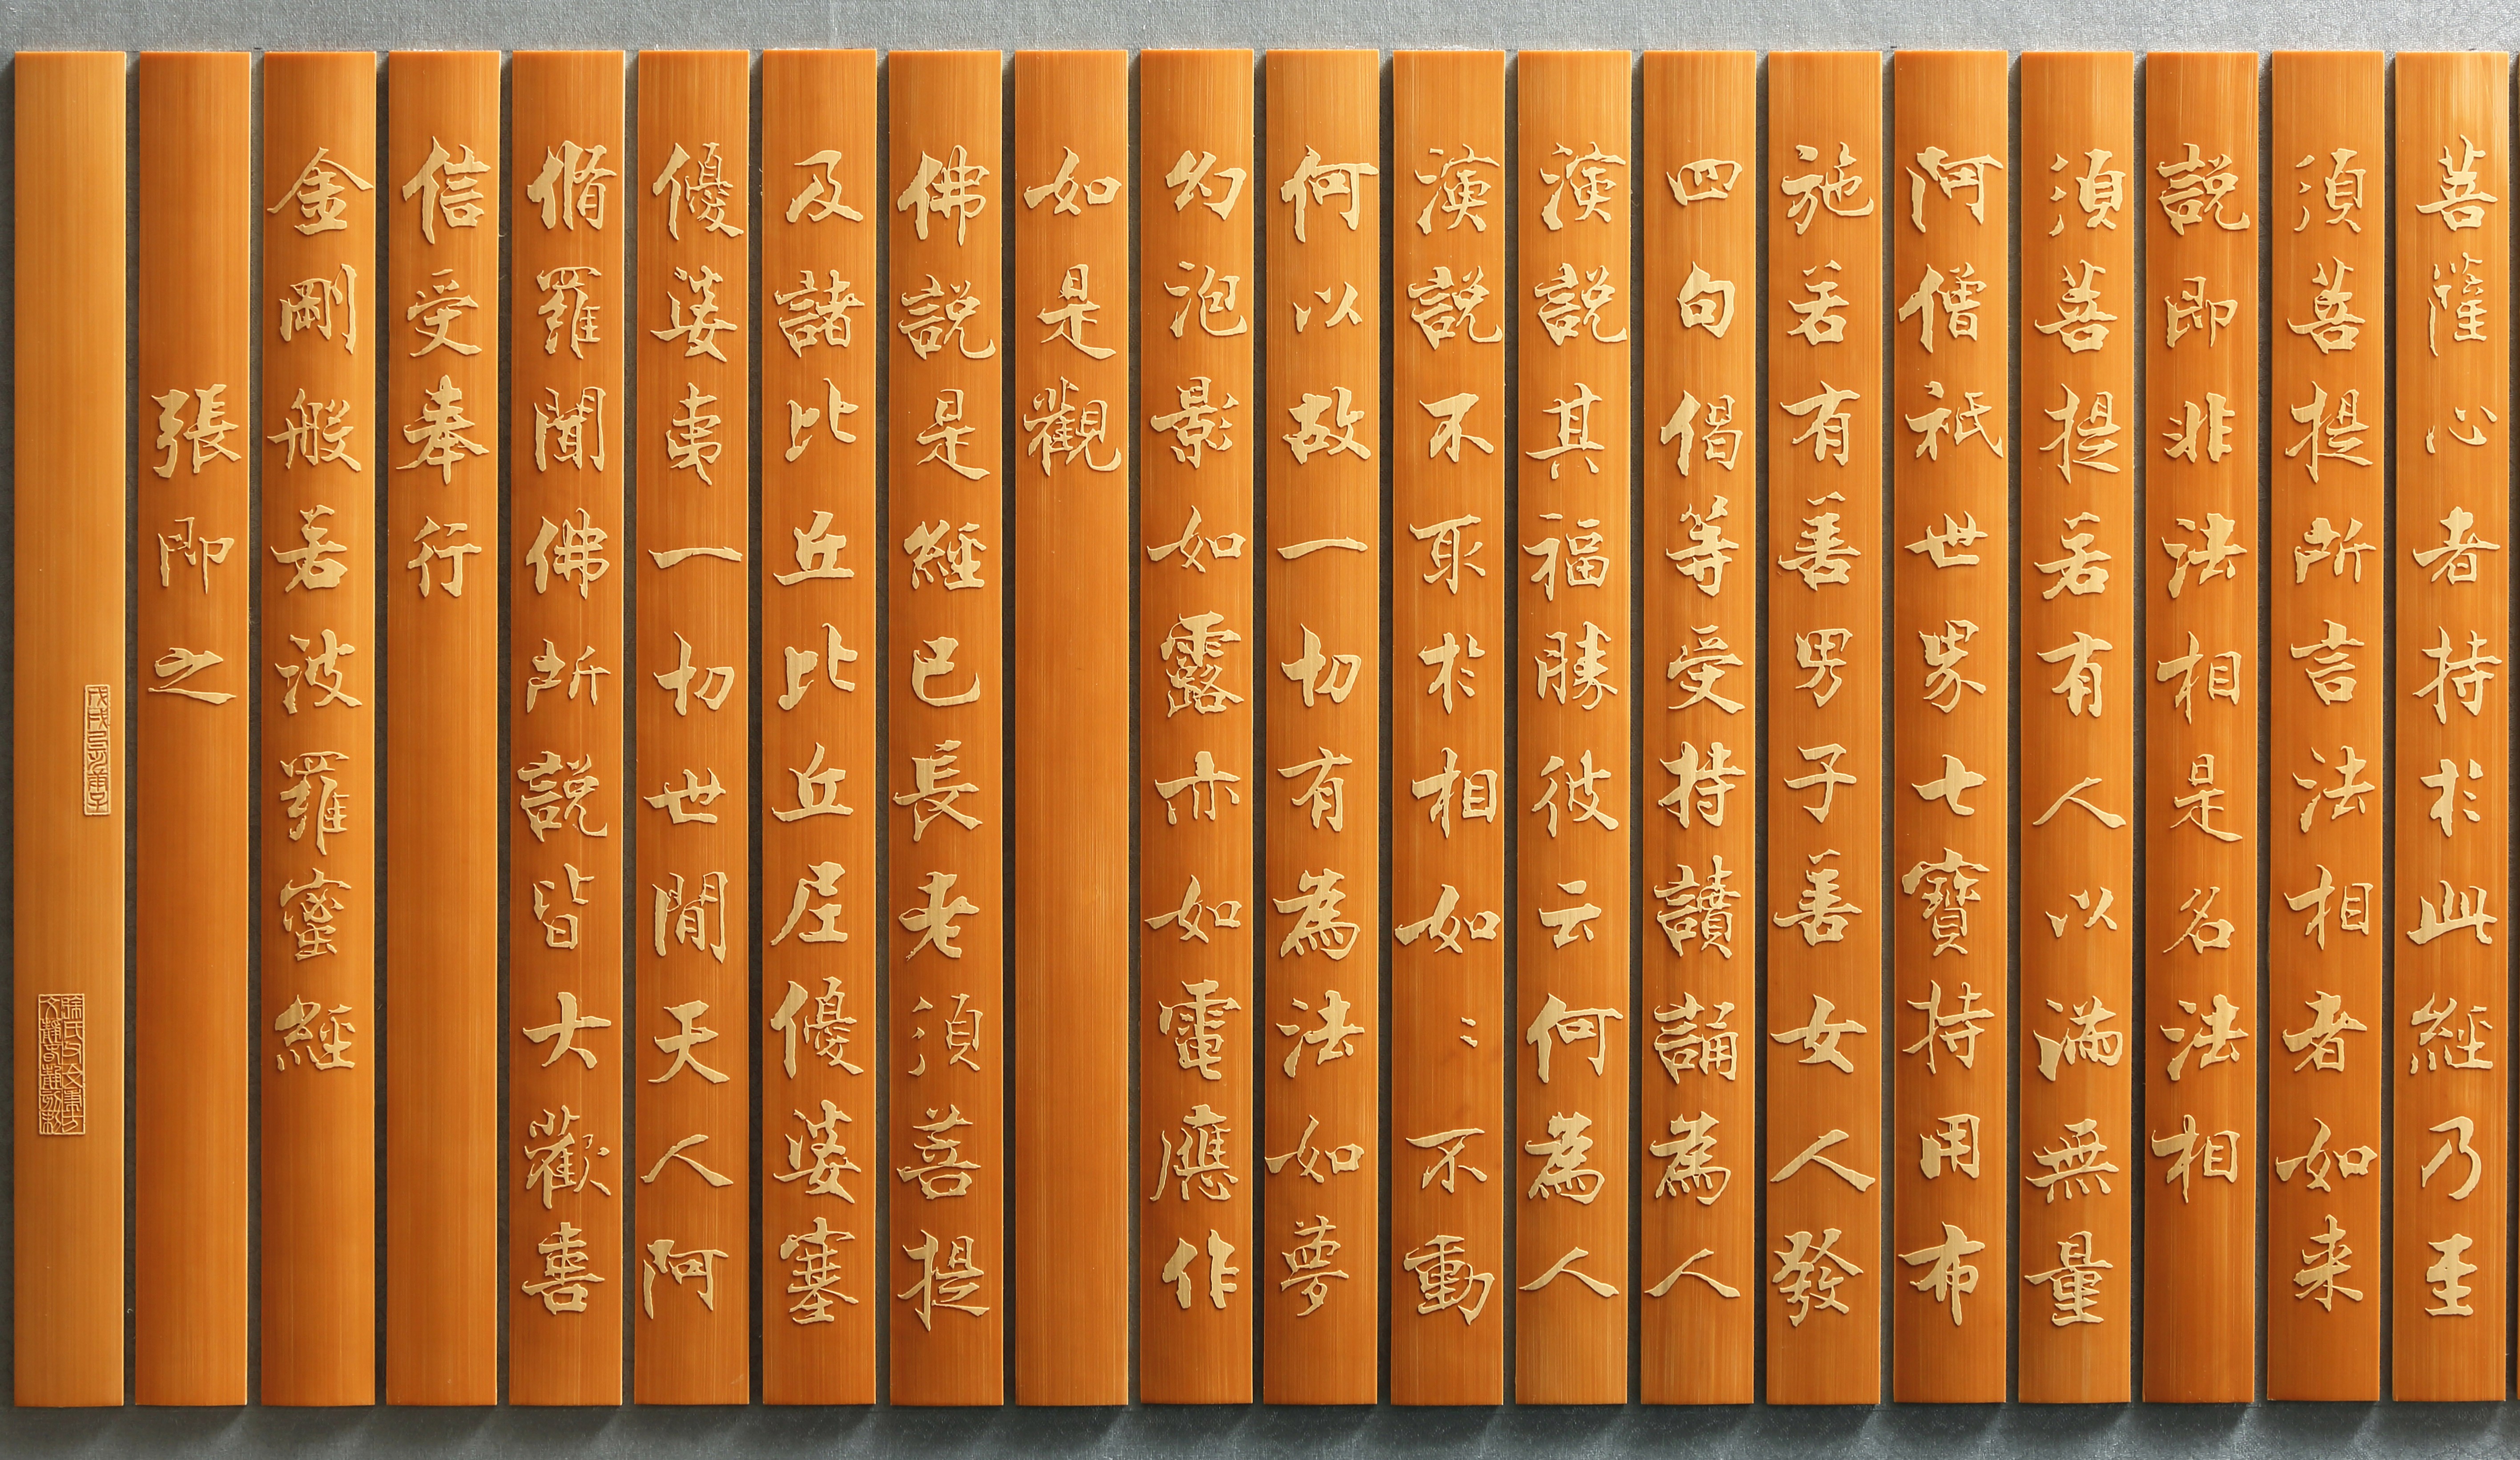 菩薩心者持於此經乃至
須菩提所言法相者如来
説即非法相是名法相
須菩提若有人以滿無量
阿僧祇世界七寶持用布
施若有善男子善女人發
四句偈等受持讀誦為人
演説其福勝彼云何為人
演説不取於相如〻不動
何以故一切有為法如夢
幻泡影如露亦如電應作
如是觀
佛説是經已長老須菩提
及諸比丘比丘尼優婆塞
優婆夷一切世間天人阿
脩羅聞佛所説皆大歡喜
信受奉行
金剛般若波羅蜜經
張即之